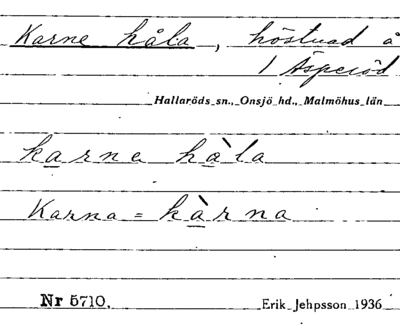 Karne håla, höstvad å
1 Äsperöd
Hallaröds sn., Onsjö hd., Malmöhus län
karne hå̀la
Karna = kàrna
Nr 5710.
Erik Jehpsson 1936